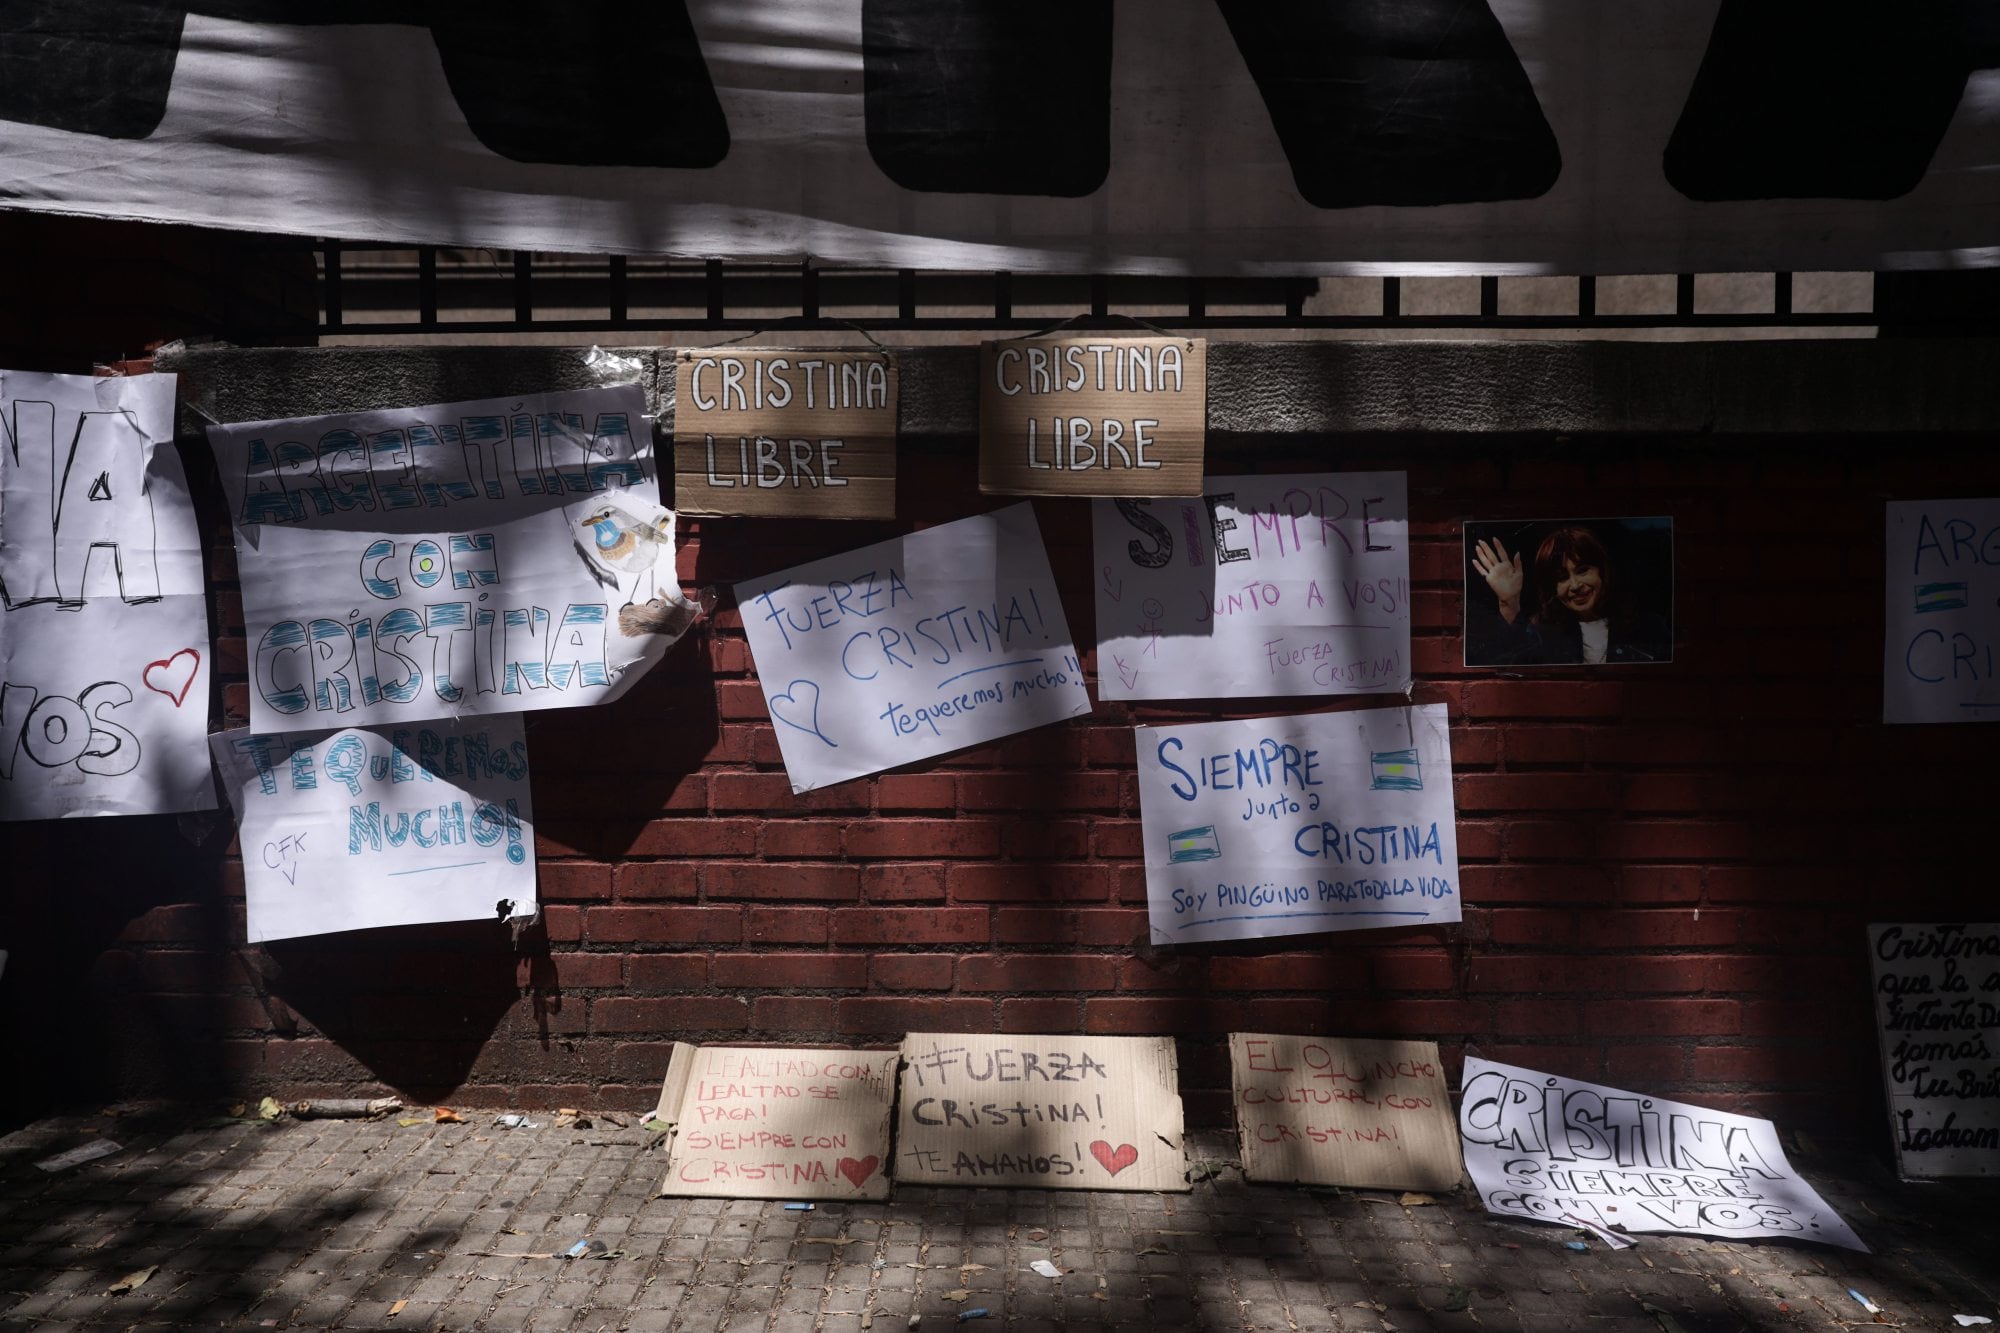 ARGENTINA
CON
CRISTINA
TE QUEREMOS
MUCHO!
CFK
VOS
CRISTINA
LIBRE
CRISTINA
LIBRE
FUERZA
CRISTINA!
Te queremos mucho!!
SIEMPRE
JUNTO A VOS!!
FUERZA
CRISTINA!
SIEMPRE
Junto a
CRISTINA
SOY PINGÜINO PARA TODA LA VIDA
ARG
CRI
LEALTAD CON
LEALTAD SE
PAGA!
SIEMPRE CON
CRISTINA!
¡FUERZA
CRISTINA!
TE AMAMOS!
EL QUINCHO
CULTURAL, CON
CRISTINA!
CRISTINA
SIEMPRE
CON VOS.
Cristina
que la
intente
jamás
Tu